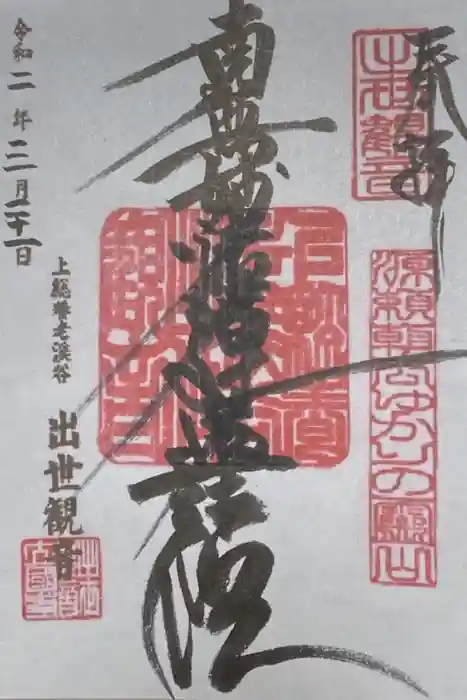 奉拝
出世観音
源頼朝公ゆかりの
南無妙法蓮華經
令和二年三月二十一日
上総養老渓谷
出世観音